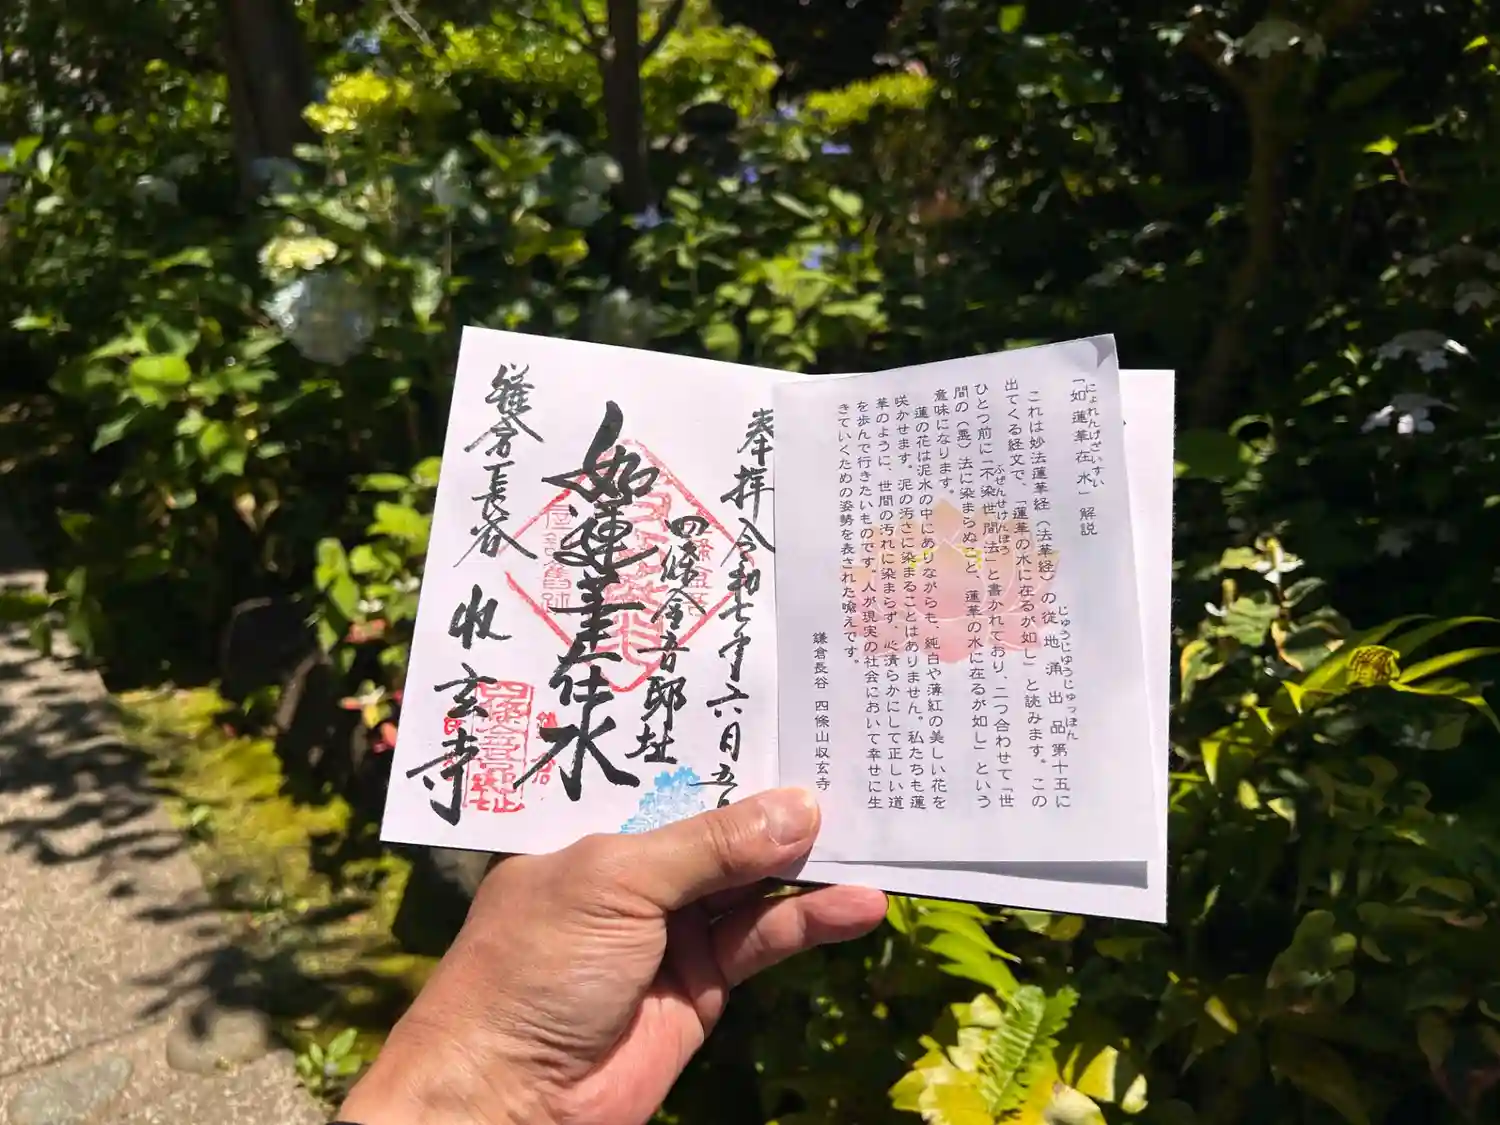 「如蓮華在水」解説
にょれんげざいすい
これは妙法蓮華経（法華経）の従地涌出品第十五に
じゅうじゆうじゅっぽん
出てくる経文で、「蓮華の水に在るが如し」と読みます。この
ひとつ前に「不染世間法」と書かれており、二つ合わせて「世
ふぜんせけんほう
間の（悪）法に染まらぬこと、蓮華の水に在るが如し」という
意味になります。
蓮の花は泥水の中にありながらも、純白や薄紅の美しい花を
咲かせます。泥の汚さに染まることはありません。私たちも蓮
華のように、世間の汚れに染まらず、心清らかにして正しい道
を歩んで行きたいものです。人が現実の社会において幸せに生
きていくための姿勢を表された喩えです。
鎌倉長谷 四條山収玄寺
奉拝 令和七年六月五
四條金吾邸址
如蓮華在水
鎌倉長谷
収玄寺